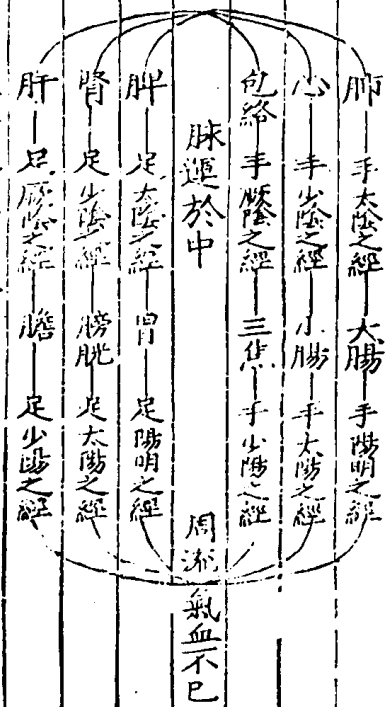 肺 手太陰之經 大腸 手陽明之經
心 手少陰之經 小腸 手太陽之經
包絡 手厥陰之經 三焦 手少陽之經
脉運於中 周流氣血不已
脾 足太陰之經 胃 足陽明之經
腎 足少陰之經 膀胱 足太陽之經
肝 足厥陰之經 膽 足少陽之經